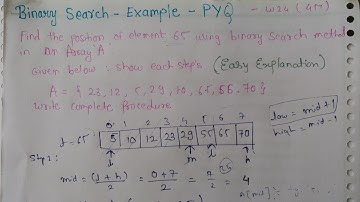 Binary Search - Example - PYQ - W24 (4M)
Find the position of element 65 using binary search method
in an Array 'A'
Given below : show each step's (Easy Explanation)
A = { 23, 12, 5, 29, 10, 65, 55, 70 }
write complete procedure
0 1 2 3 4 5 6 7
f = 65 5 10 12 23 29 55 65 70
low = mid + 1
high = mid - 1
l m l h
Step 1:
mid = (l + h) / 2 = 0 + 7 / 2 = 7 / 2 = 4